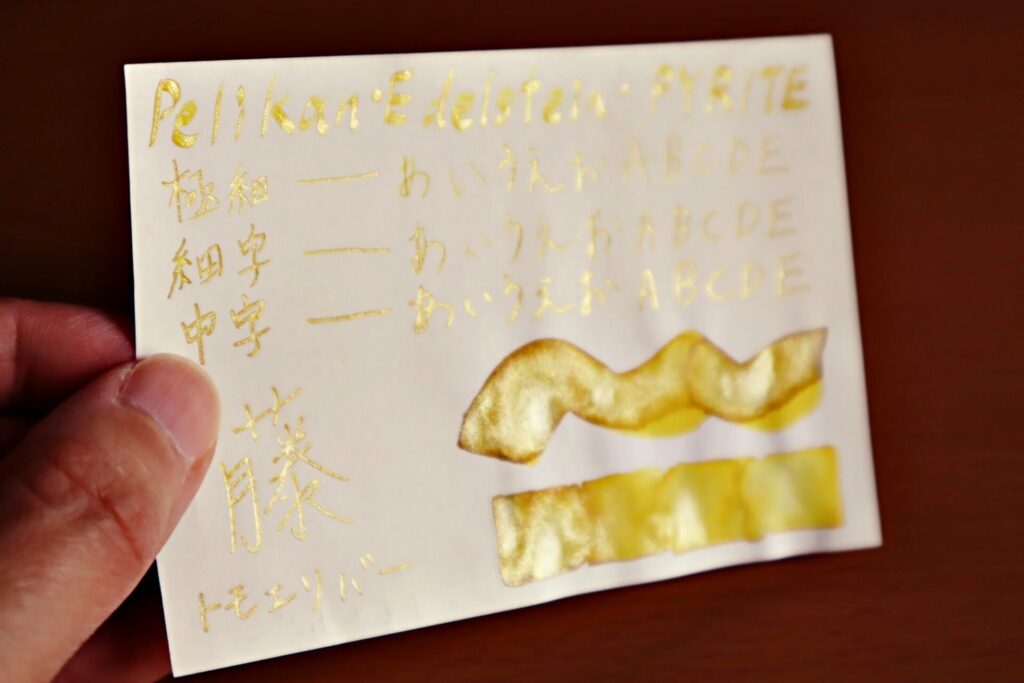 Pelikan・Edelstein・PYRITE
極細 ― あいうえおABCDE
細字 ― あいうえおABCDE
中字 ― あいうえおABCDE
藤
トモエリバー